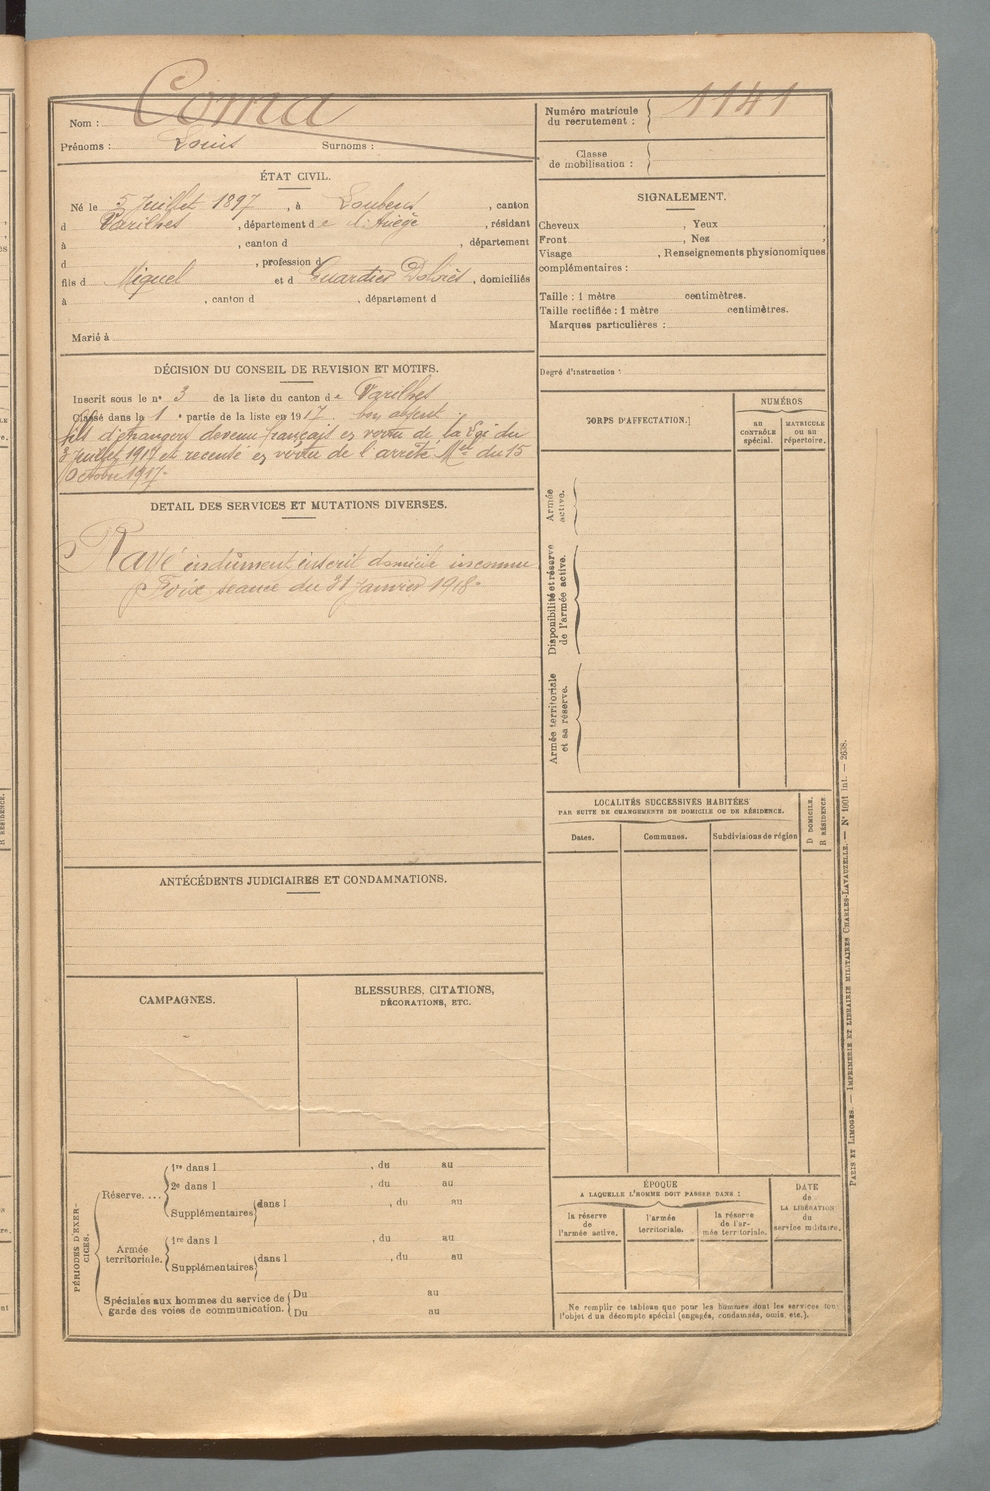 Nom : Coma
Prénoms : Louis Surnoms :
Numéro matricule du recrutement : 1141
Classe de mobilisation :
ÉTAT CIVIL.
Né le 5 Juillet 1897, à Loubens, canton
d Varilhes, département de l'Ariège, résidant
à , canton d , département
d , profession d
fils d Miquel et d Guardies Dolorès, domiciliés
à , canton d , département d
Marié à
SIGNALEMENT.
Cheveux , Yeux ,
Front , Nez ,
Visage , Renseignements physionomiques
complémentaires :
Taille : 1 mètre centimètres.
Taille rectifiée : 1 mètre centimètres.
Marques particulières :
Degré d'instruction :
DÉCISION DU CONSEIL DE REVISION ET MOTIFS.
Inscrit sous le n° 3 de la liste du canton de Varilhes
Classé dans la 1e partie de la liste en 1917 bon absent
fils d'étrangers devenu français en vertu de la Loi du
3 juillet 1917 et recensé en vertu de l'arrêté Mel du 15
Octobre 1917.
DETAIL DES SERVICES ET MUTATIONS DIVERSES.
Rayé indûment inscrit domicile inconnu
Foix seance du 31 janvier 1918.
CORPS D'AFFECTATION.
NUMÉROS
AU CONTRÔLE spécial.
MATRICULE OU AU répertoire.
Armée active.
Disponibilité et réserve de l'armée active.
Armée territoriale et sa réserve.
LOCALITÉS SUCCESSIVES HABITÉES
PAR SUITE DE CHANGEMENTS DE DOMICILE OU DE RÉSIDENCE.
Dates.
Communes.
Subdivisions de région
D DOMICILE.
R RÉSIDENCE
ANTÉCÉDENTS JUDICIAIRES ET CONDAMNATIONS.
CAMPAGNES.
BLESSURES, CITATIONS,
DÉCORATIONS, ETC.
PÉRIODES D'EXERCICES.
Réserve....
1re dans l , du au
2e dans l , du au
Supplémentaires dans l , du au
Armée territoriale.
1re dans l , du au
Supplémentaires dans l , du au
Spéciales aux hommes du service de garde des voies de communication.
Du au
Du au
ÉPOQUE
A LAQUELLE L'HOMME DOIT PASSER DANS :
la réserve de l'armée active.
l'armée territoriale.
la réserve de l'armée territoriale.
DATE de LA LIBÉRATION du service militaire.
Ne remplir ce tableau que pour les hommes dont les services font
l'objet d'un décompte spécial (engagés, condamnés, omis etc.).
PARIS ET LIMOGES. — IMPRIMERIE ET LIBRAIRIE MILITAIRES CHARLES-LAVAUZELLE. — N° 1001 int. — 2638.